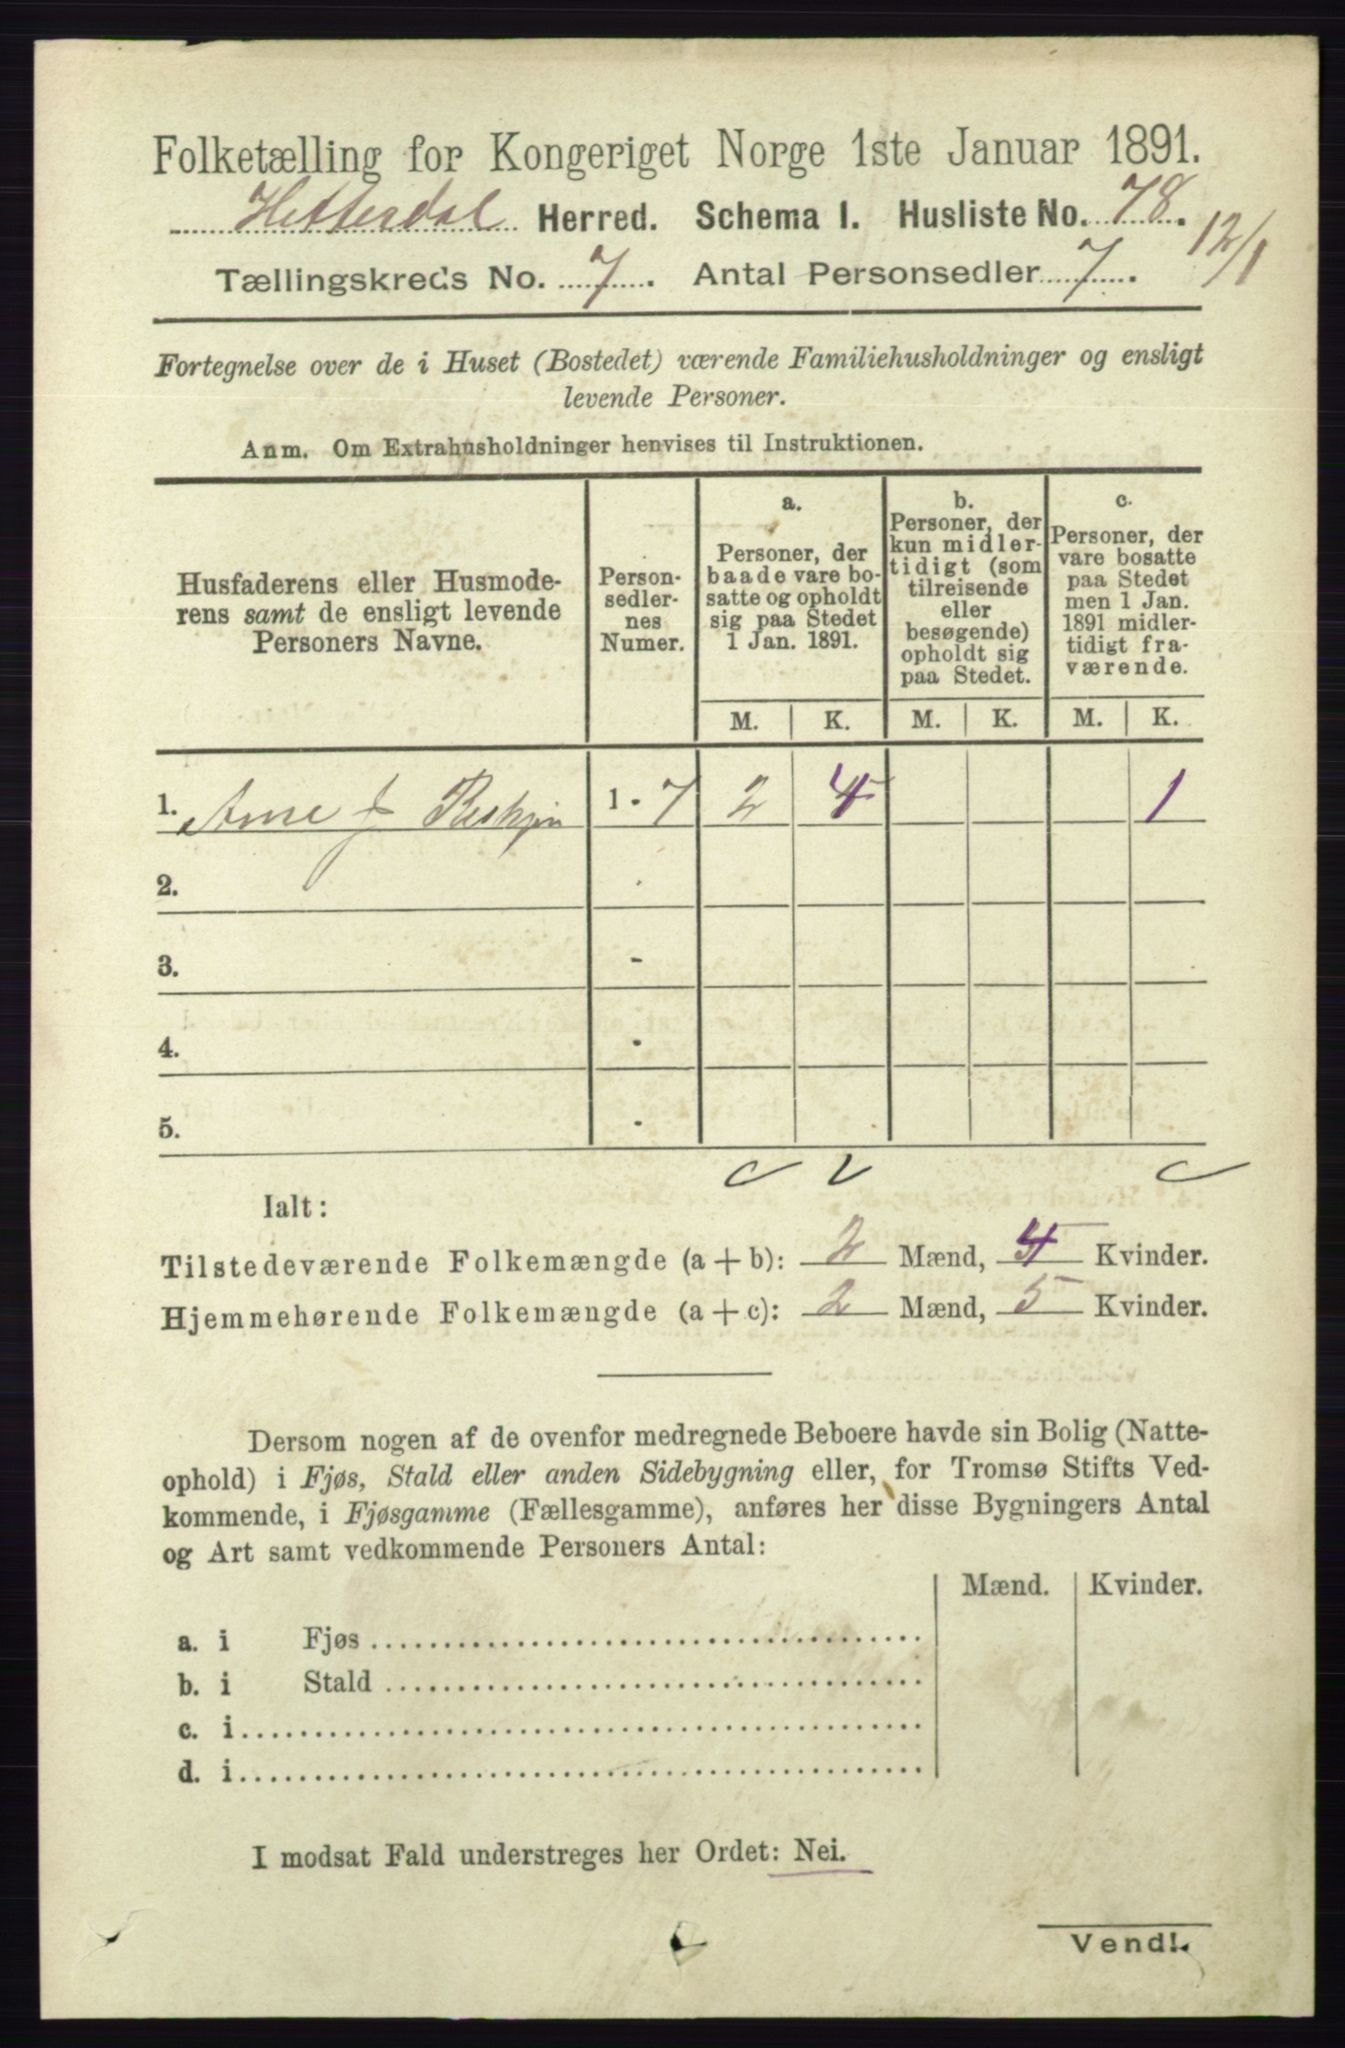 Folketælling for Kongeriget Norge 1ste Januar 1891.
Hitterdal Herred. Schema I. Husliste No. 78.
12/1
Tællingskreds No. 7. Antal Personsedler 7.
Fortegnelse over de i Huset (Bostedet) værende Familiehusholdninger og ensligt
levende Personer.
Anm. Om Extrahusholdninger henvises til Instruktionen.
Husfaderens eller Husmode-
rens samt de ensligt levende
Personers Navne.
Person-
sedler-
nes
Numer.
a.
Personer, der
baade vare bo-
satte og opholdt
sig paa Stedet
1 Jan. 1891.
b.
Personer, der
kun midler-
tidigt (som
tilreisende
eller
besøgende)
opholdt sig
paa Stedet.
c.
Personer, der
vare bosatte
paa Stedet
men 1 Jan.
1891 midler-
tidigt fra-
værende.
M. K. M. K. M. K.
1. Arne J 1 - 7 2 4 1
2.
3. -
4. -
5. -
Ialt:
Tilstedeværende Folkemængde (a + b): 2 Mænd, 4 Kvinder.
Hjemmehørende Folkemængde (a + c): 2 Mænd, 5 Kvinder.
Dersom nogen af de ovenfor medregnede Beboere havde sin Bolig (Natte-
ophold) i Fjøs, Stald eller anden Sidebygning eller, for Tromsø Stifts Ved-
kommende, i Fjøsgamme (Fællesgamme), anføres her disse Bygningers Antal
og Art samt vedkommende Personers Antal:
Mænd. Kvinder.
a. i Fjøs
b. i Stald
c. i
d. i
I modsat Fald understreges her Ordet: Nei.
Vend!